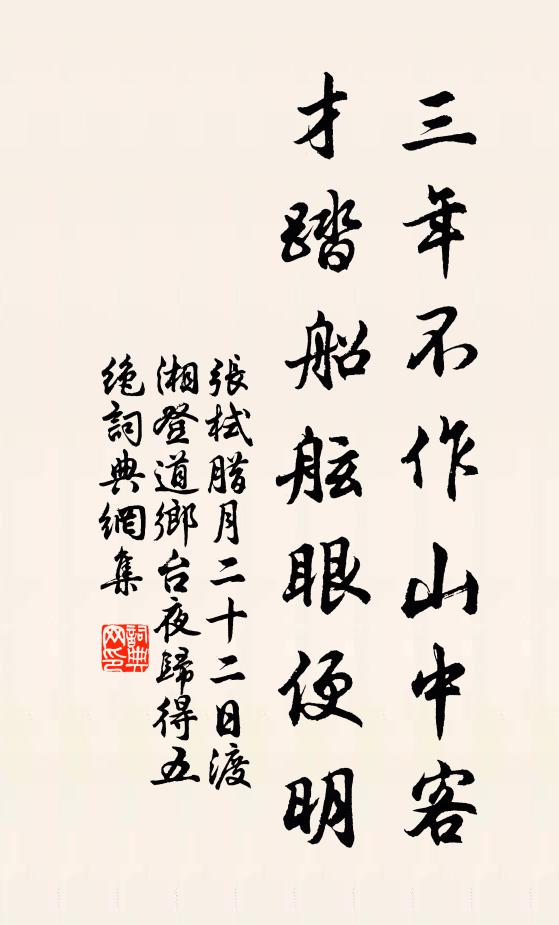 三年不作山中客
才踏船舷眼便明
張栻腊月二十二日渡
湘登道鄉台夜歸得五
絶詞典網集
詞典
网印